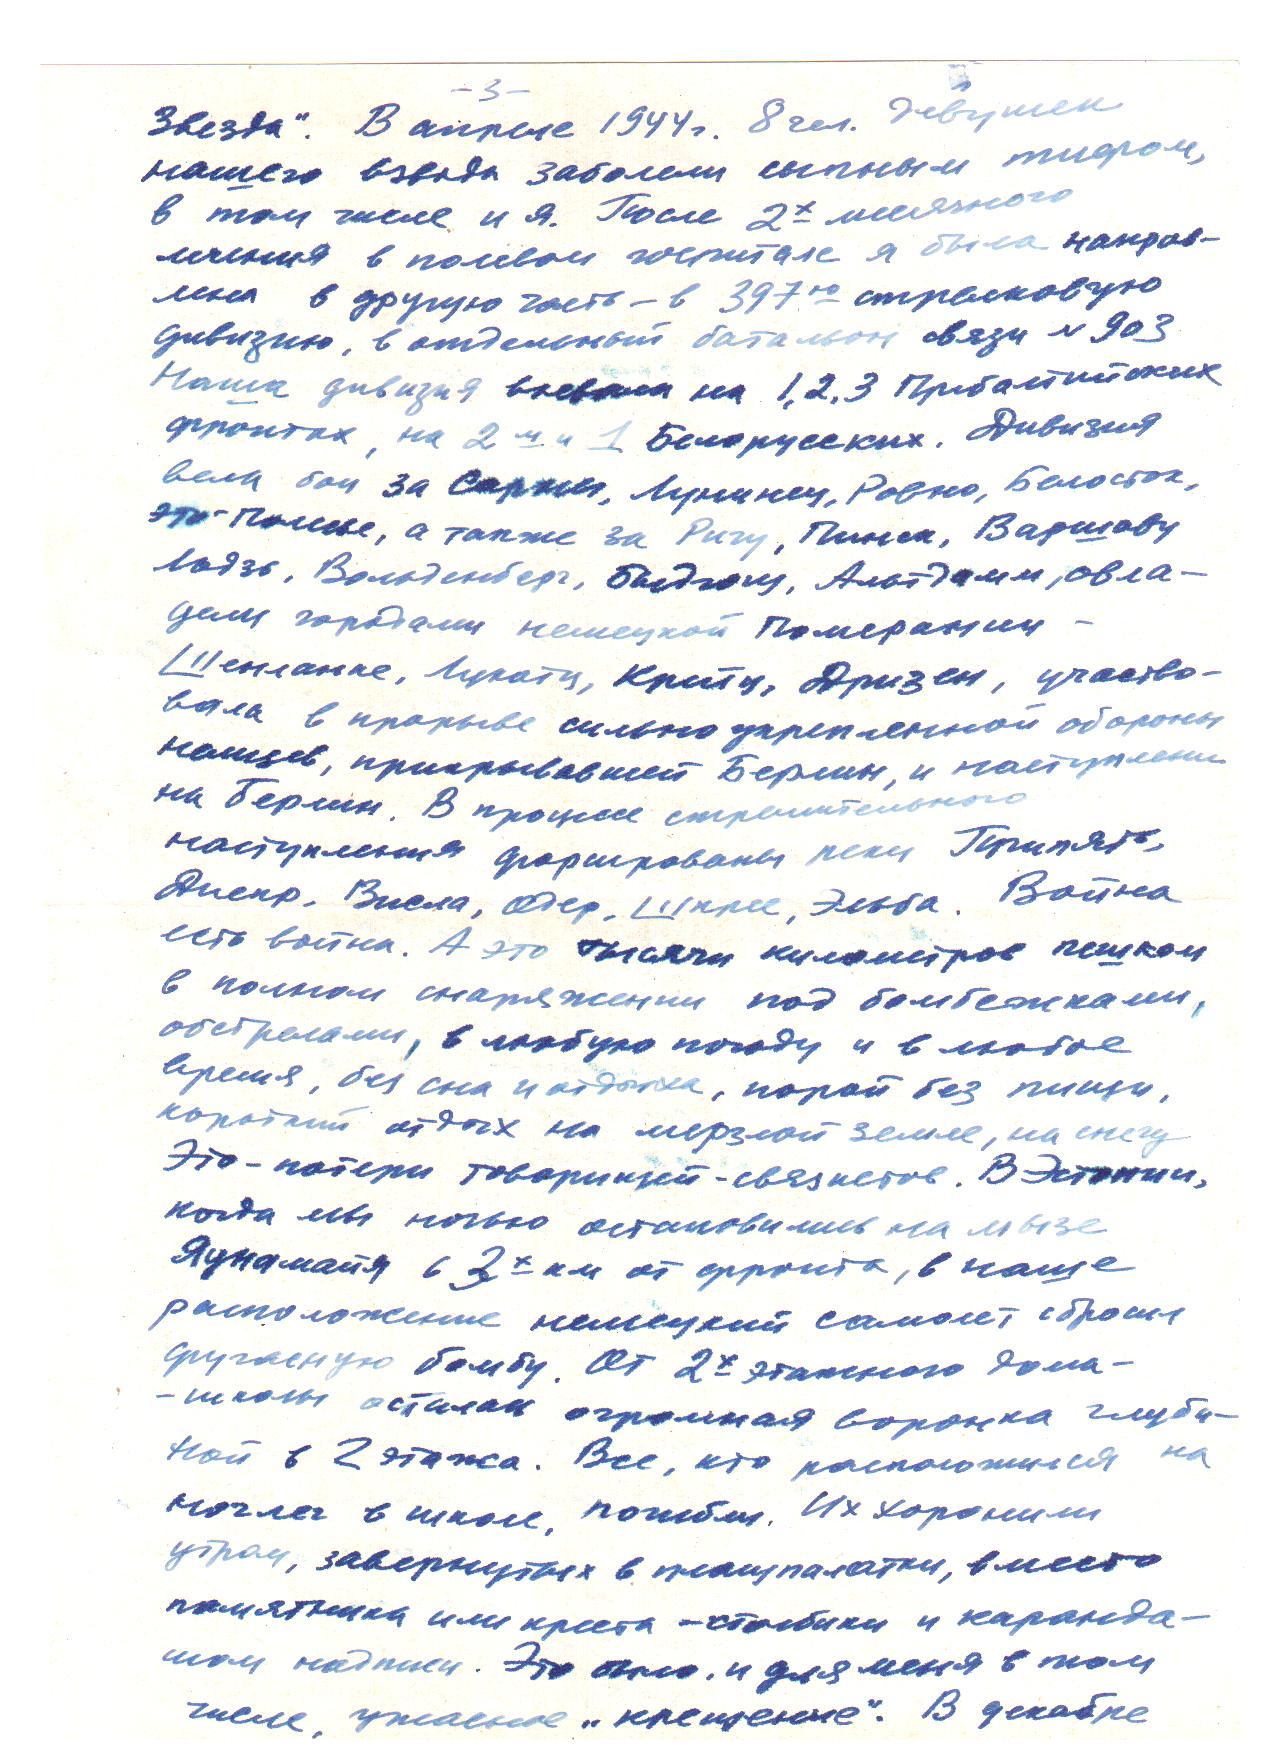 -3-
Звезда". В апреле 1944г. 8 чел. девушек
нашего взвода заболели сыпным тифом,
в том числе и я. После 2х месячного
лечения в полевом госпитале я была направ-
лена в другую часть - в 397ю стрелковую
дивизию, в отдельный батальон связи №903
Наша дивизия воевала на 1,2,3 Прибалтийских
фронтах, на 2м и 1 Белорусских. Дивизия
вела бои за Сарны, Лунинец, Ровно, Белосток,
это-Полесье, а также за Ригу, Пинск, Варшаву
Лодзь, Вольденберг, Быдгощ, Альтдамм, овла-
дели городами немецкой Померании -
Шенланке, Лукатц, Крейц, Дризен, участво-
вала в прорыве сильно укрепленной обороны
немцев, прикрывавшей Берлин, и наступлении
на Берлин. В процессе стремительного
наступления форсированы реки Припять,
Днепр, Висла, Одер, Шпрее, Эльба. Война
есть война. А это тысячи километров пешком
в полном снаряжении под бомбежками,
обстрелами, в любую погоду и в любое
время, без сна и отдыха, порой без пищи,
короткий отдых на мерзлой земле, на снегу
Это-потери товарищей-связистов. В Эстонии,
когда мы ночью остановились на мызе
Яунамайя в 3х км от фронта, в наше
расположение немецкий самолет сбросил
фугасную бомбу. От 2х этажного дома-
-школы осталась огромная воронка глуби-
ной в 2 этажа. Все, кто расположился на
ночлег в школе, погибли. Их хоронили
утром, завернутых в плащпалатки, вместо
памятника или креста - столбики и каранда-
шом надписи. Это было, и для меня в том
числе, ужасное „крещение". В декабре